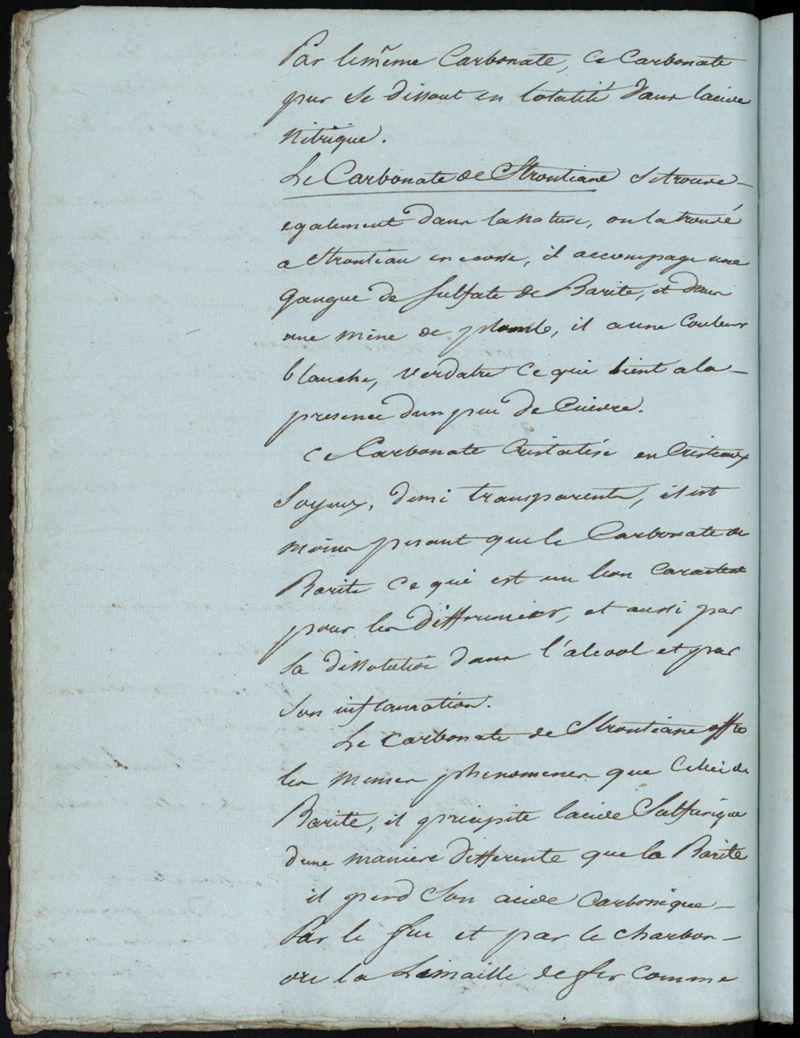 Par le même Carbonate, Ce Carbonate
pur se dissout en totalité dans lacide
Nitrique.
Le Carbonate de Strontiane setrouve
egalement dans lanature, on la trouvé
a Strontian en ecosse, il accompage une
Gangue de Sulfate de Barite, et dans
une mine de plomb, il aune Couleur
blanche, verdatre ce qui tient ala
presence dun peu de Cuivre.
Ce Carbonate Cristalise en Cristeaux
Soyeux, demi transparents, il est
moins pesant que le Carbonate de
Barite ce qui est un bon caractere
pour les differencier, et aussi par
Sa dissolution dans l'alcool et par
Son inflamation.
Le Carbonate de Strontiane offre
les memes phenomenes que Celui de
Barite, il precipite lacide Sulfurique
dune maniere differente que la Barite
il perd Son acide Carbonique
Par le feu et par le charbon
ou la Limaille de fer comme